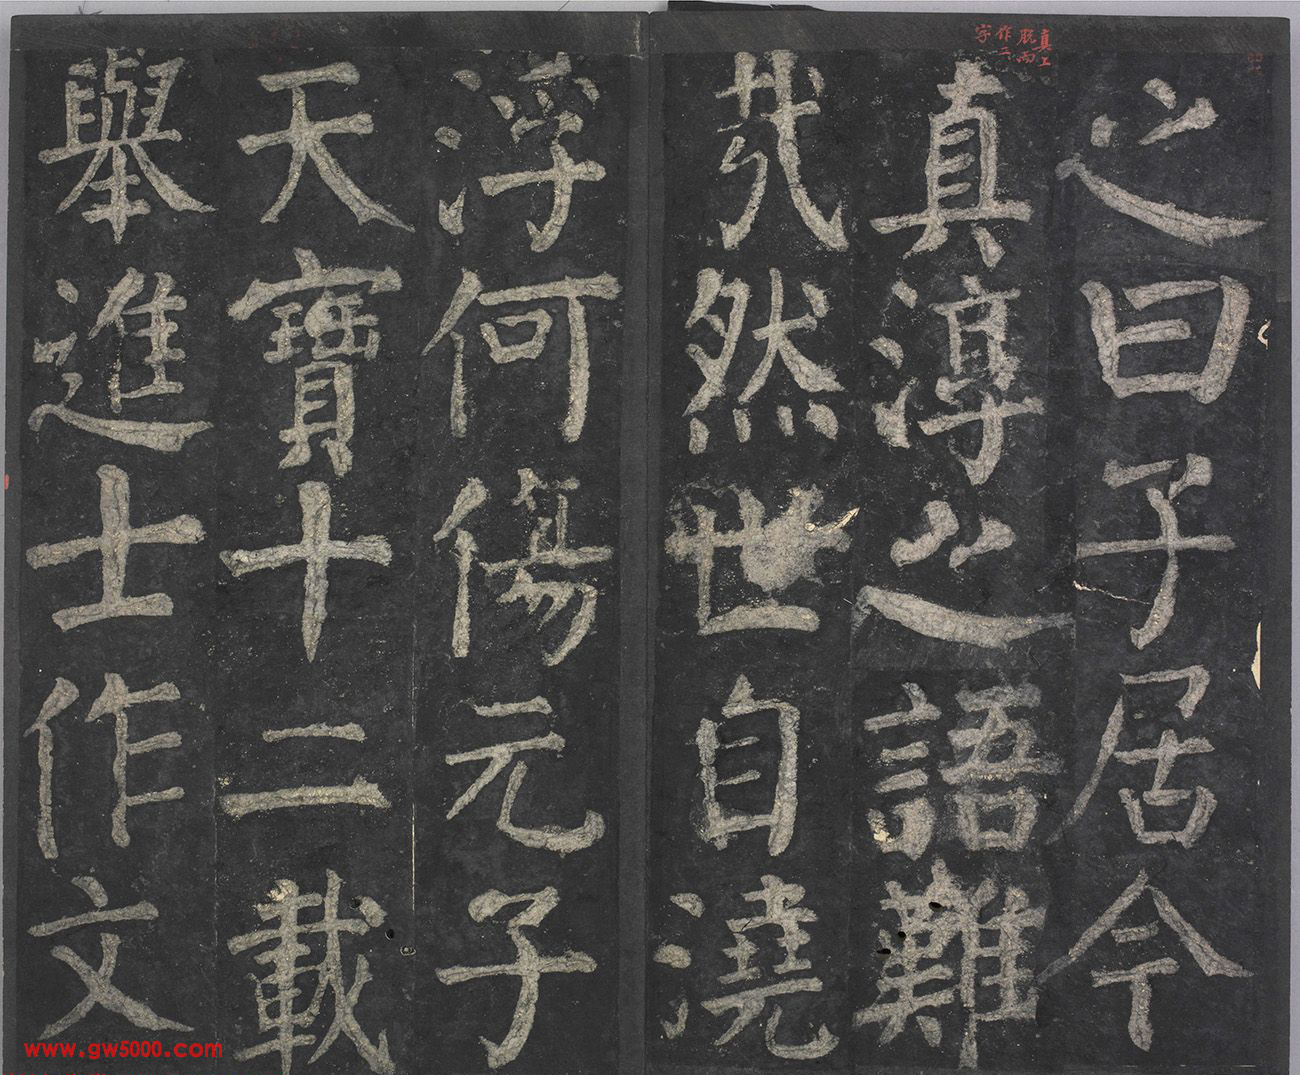 真上
脫而
作二
字
之曰子居今
真淳之語難
哉然世自澆
浮何傷元子
天寶十二載
舉進士作文
www.gw5000.com